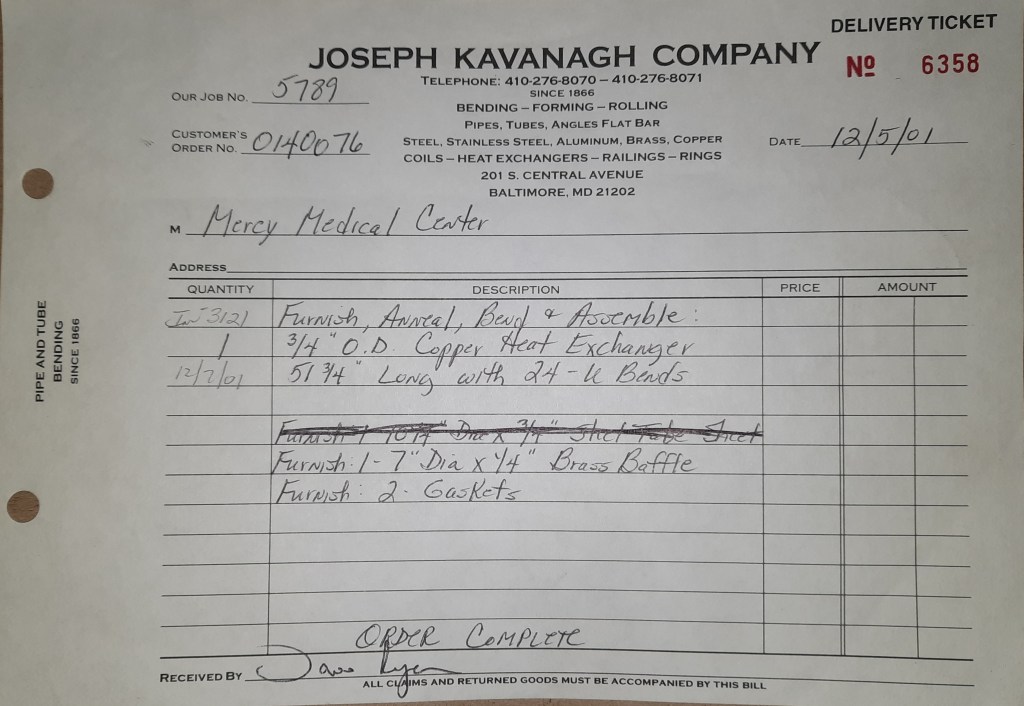 DELIVERY TICKET
JOSEPH KAVANAGH COMPANY
Nº 6358
TELEPHONE: 410-276-8070 – 410-276-8071
SINCE 1866
OUR JOB NO. 5789
BENDING – FORMING – ROLLING
PIPES, TUBES, ANGLES FLAT BAR
CUSTOMER'S ORDER NO. 0140076
STEEL, STAINLESS STEEL, ALUMINUM, BRASS, COPPER
DATE 12/5/01
COILS – HEAT EXCHANGERS – RAILINGS – RINGS
201 S. CENTRAL AVENUE
BALTIMORE, MD 21202
M Mercy Medical Center
ADDRESS
QUANTITY DESCRIPTION PRICE AMOUNT
3121 Furnish, Anneal, Bend & Assemble:
1 3/4" O.D. Copper Heat Exchanger
12/7/01 51 3/4" Long with 24-U Bends
Furnish: 1-7" Dia x 1/4" Brass Baffle
Furnish: 2- Gaskets
ORDER COMPLETE
RECEIVED BY Dave
ALL CLAIMS AND RETURNED GOODS MUST BE ACCOMPANIED BY THIS BILL
PIPE AND TUBE
BENDING
SINCE 1866